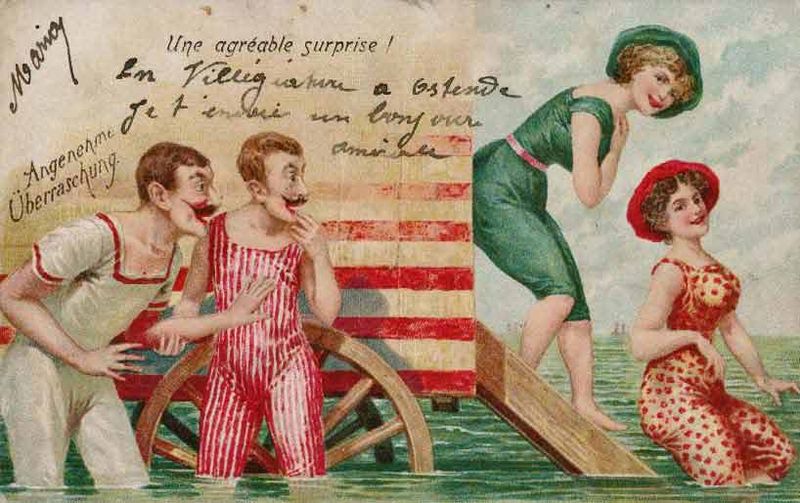 Maria
Une agréable surprise !
En Villégiature a Ostende
Je t'envoie un bonjour
amicale
Angenehme
Überraschung.